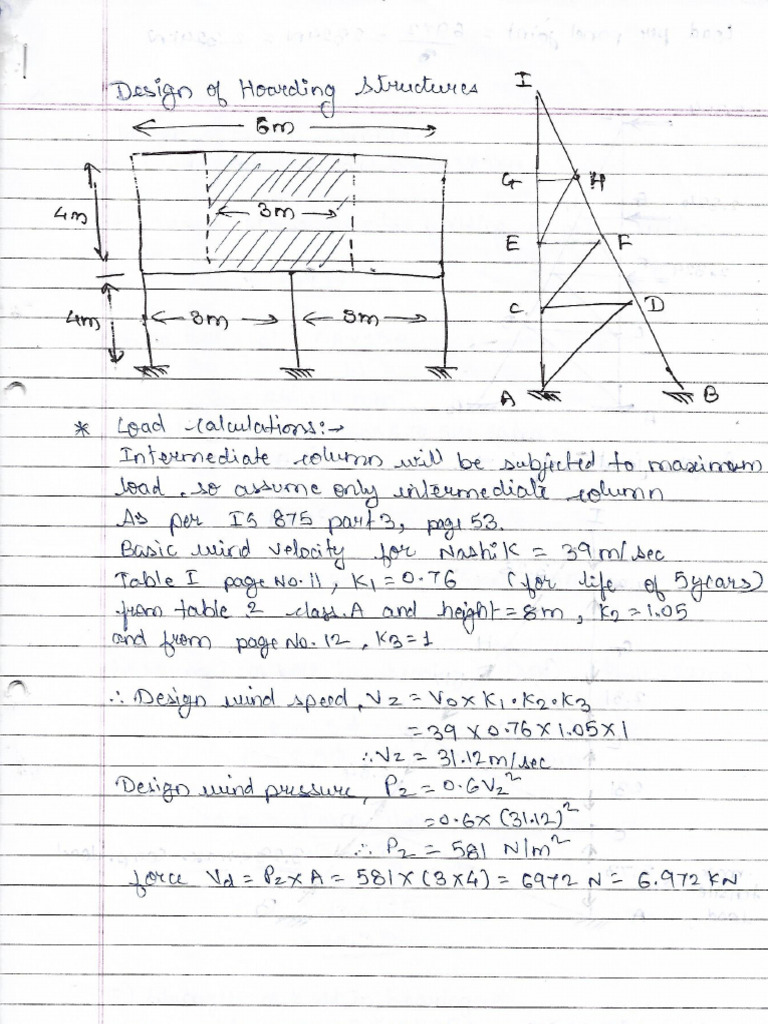 Design of Hoarding Structures
6m
4m
3m
4m
3m
3m
I
G
H
E
F
C
D
A
B
* Load Calculations:→
Intermediate column will be subjected to maximum
load, so assume only intermediate column
As per IS 875 part 3, page 53.
Basic wind velocity for Nashik = 39 m/sec
Table I page No. 11, K1 = 0.76 (for life of 5 years)
from table 2 class A and height = 8m, K2 = 1.05
and from page No. 12, K3 = 1
∴ Design wind speed, Vz = Vb x K1 . K2 . K3
= 39 x 0.76 x 1.05 x 1
∴ Vz = 31.12 m/sec
Design wind pressure, Pz = 0.6 Vz²
= 0.6 x (31.12)²
∴ Pz = 581 N/m²
force Vd = Pz x A = 581 x (3 x 4) = 6972 N = 6.972 KN